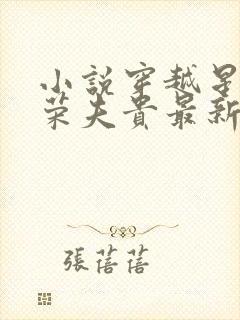 小說穿越星
荣夫貴最新
張蓓蓓